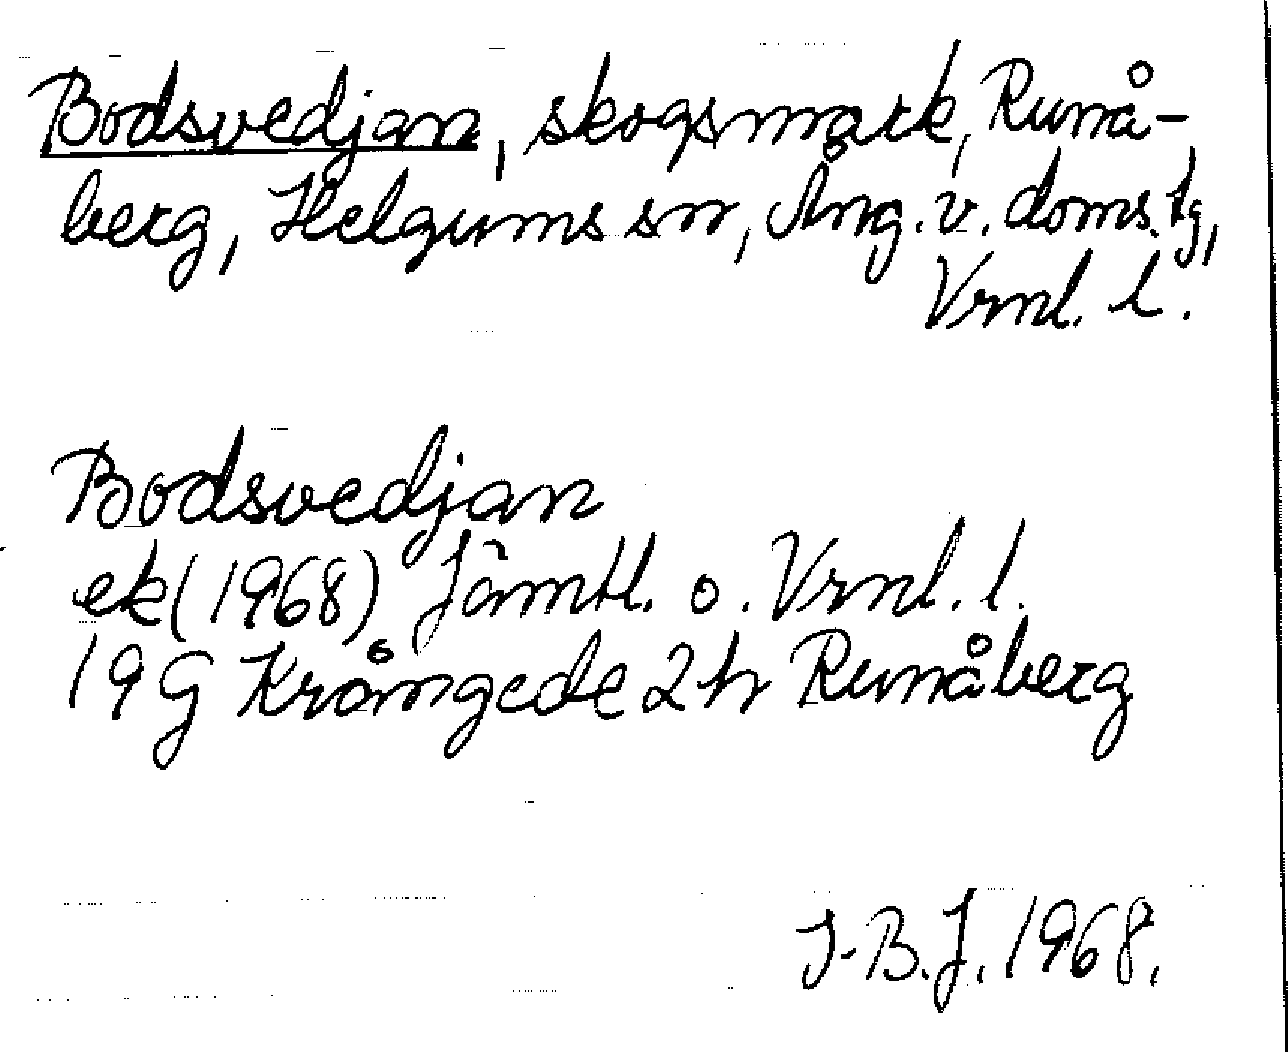 Bodsvedjan, skogsmark, Runå-
berg, Helgums sn, Ång. v. doms. tg,
Vrnl. l.
Bodsvedjan
ek (1968) Jämtl. o. Vrnl. l.
19 G Krångede 2 h Runåberg
I-B.J. 1968.